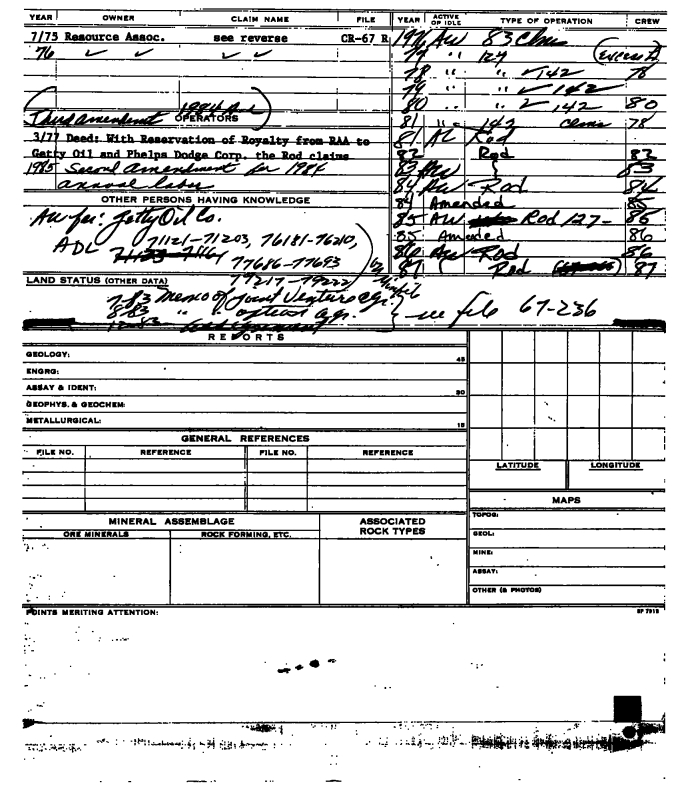 YEAR OWNER CLAIM NAME FILE
7/75 Resource Assoc. see reverse CR-67 R
76 ✓ ✓ ✓ ✓
Third amendment 1984 
OPERATORS
3/77 Deed: With Reservation of Royalty from RAA to
Getty Oil and Phelps Dodge Corp. the Rod claims
1985 Second Amendment for 1984
annual labor
OTHER PERSONS HAVING KNOWLEDGE
AW for: Getty Oil Co.
ADL 71121-71203, 76181-76210,
77686-77693
79217-79222
LAND STATUS (OTHER DATA)
7-83 Memo of Joint Venture agr.
8-83 " " option agr. } see file 67-236
YEAR ACTIVE OR IDLE TYPE OF OPERATION CREW
1976 AW 83 Clms
77 " 127 (excess)
78 " " ✓ 142 78
79 " " ✓ 142
80 " " ✓ 142 80
81 " 142 Clms 78
81 AL Rod
82 Rod 82
83 AW } 83
84 AW Rod 84
84 Amended 85
85 AW Rod 127- 86
85 Amended 86
86 AW Rod 86
87 { Rod 87
REPORTS
GEOLOGY: 45
ENGRG:
ASSAY & IDENT: 30
GEOPHYS. & GEOCHEM:
METALLURGICAL: 15
GENERAL REFERENCES
FILE NO. REFERENCE FILE NO. REFERENCE
LATITUDE LONGITUDE
MAPS
TOPOG:
GEOL:
MINE:
ASSAY:
OTHER (& PHOTOS)
MINERAL ASSEMBLAGE
ORE MINERALS ROCK FORMING, ETC.
ASSOCIATED
ROCK TYPES
POINTS MERITING ATTENTION:
SP 7915